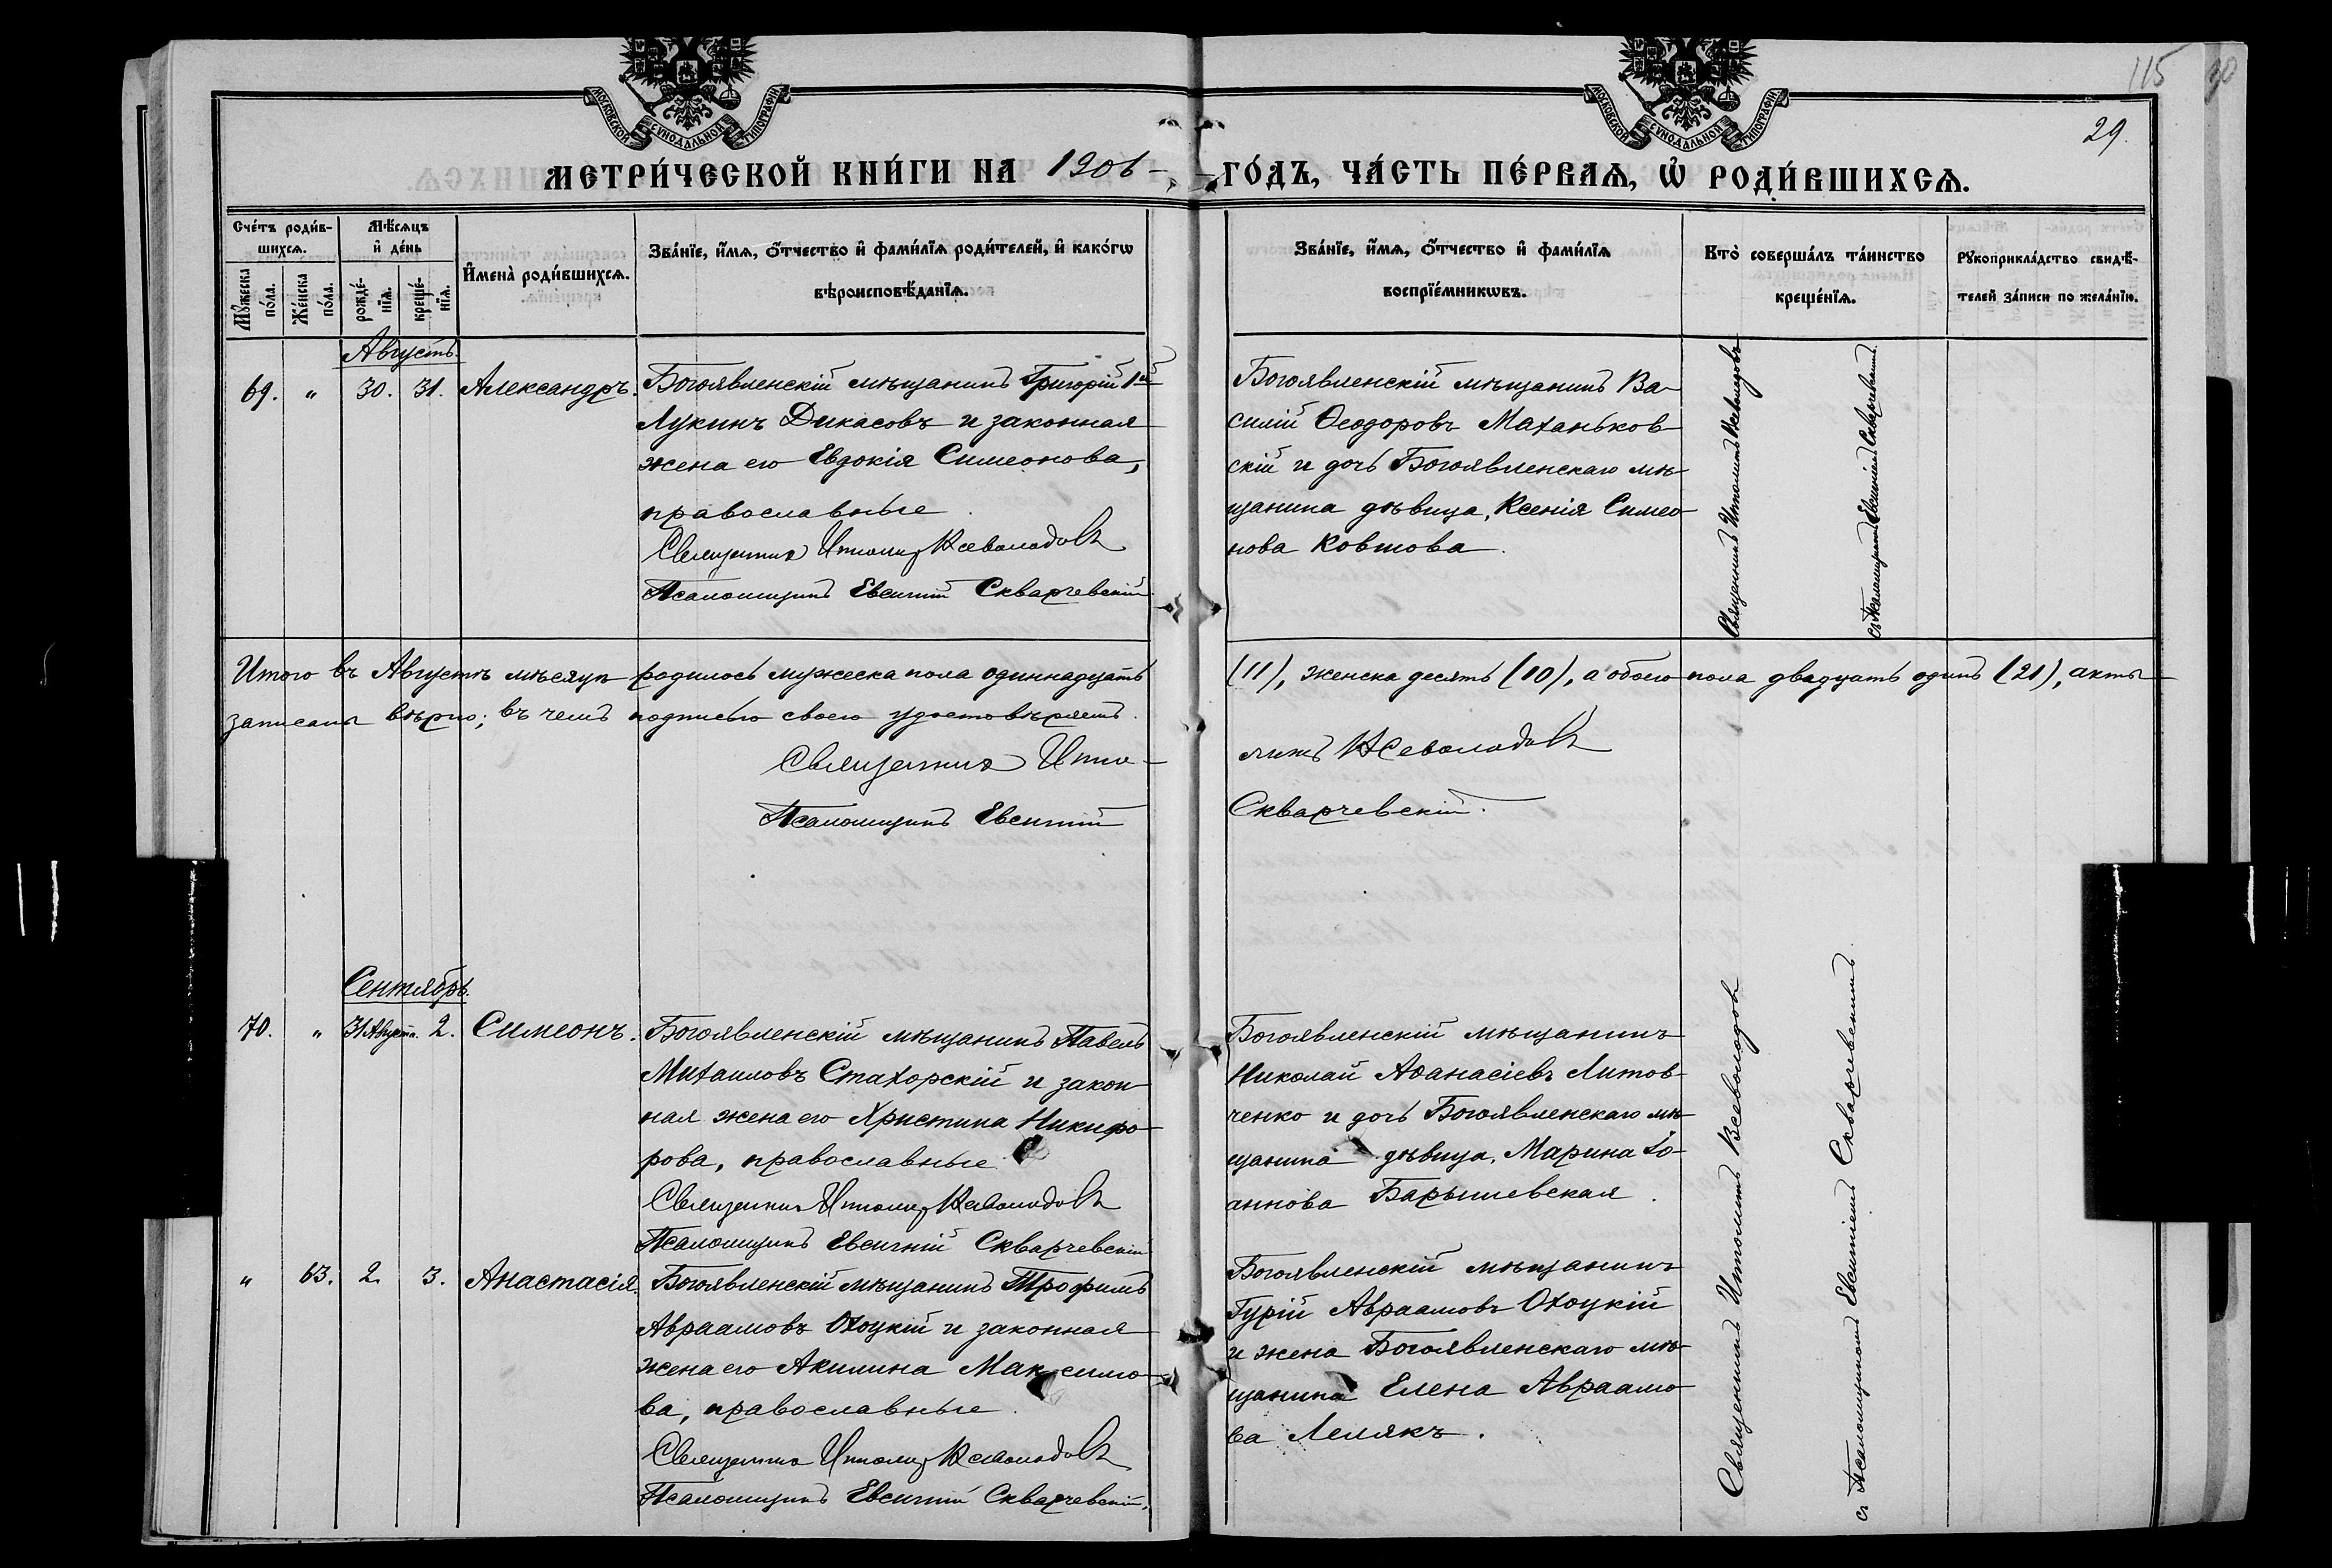 115
29.
МОСКОВСКОЙ СѴНОДАЛЬНОЙ ТИПОГРАФІИ
МОСКОВСКОЙ СѴНОДАЛЬНОЙ ТИПОГРАФІИ
МЕТРИ́ЧЕСКОЙ КНИ́ГИ НА 1906 ГО́ДЪ, ЧА́СТЬ ПЕ́РВАѦ, Ѡ҆ РОДИ́ВШИХСѦ.
Сче́тъ роди́в-
шихсѧ.
Мѣ́сѧцъ
и҆ де́нь
Мꙋ́жеска
по́ла.
Же́нска
по́ла.
рожде́-
нїѧ.
креще́-
нїѧ.
И҆мена̀ роди́вшихсѧ.
Зва́нїе, и҆́мѧ, ѻ҆́тчество и҆ фами́лїѧ роди́телей, и҆ како́гѡ
вѣроисповѣ́данїѧ.
Зва́нїе, и҆́мѧ, ѻ҆́тчество и҆ фами́лїѧ
воспрїе́мникѡвъ.
Кто̀ соверша́лъ та́инство
креще́нїѧ.
Рꙋкоприкла́дство свидѣ́-
телей за́писи по жела́нїю.
Августъ.
69. " 30. 31. Александръ.
Богоявленскій мѣщанинъ Григорій 1й
Лукинъ Дикасовъ и законная
жена его Евдокія Симеонова,
православные.
Священникъ Всеволодовъ
Псаломщикъ Евсигній Скварчевскій
Богоявленскій мѣщанинъ Ва-
силій Ѳеодоровъ Маханьков-
скій и дочь Богоявленскаго мѣ-
щанина дѣвица, Ксенія Симео-
нова Ковтова.
Священникъ Иполитъ Всеволодовъ
съ Псаломщикомъ Евсигніемъ Скварчевскимъ.
Итого въ Августѣ мѣсяцѣ родилось мужеска пола одиннадцать (11), женска десять (10), а обоего пола двадцать одинъ (21), акты
записаны вѣрно; въ чемъ подписью своею удостовѣряемъ.
Священникъ Ипо-литъ Всеволодовъ
Псаломщикъ Евсигній Скварчевскій.
Сентябрь.
70. " 31 Августа. 2. Симеонъ.
Богоявленскій мѣщанинъ Павелъ
Михаиловъ Стахорскій и закон-
ная жена его Христина Никифо-
рова, православные
Священникъ Всеволодовъ
Псаломщикъ Евсигній Скварчевскій
Богоявленскій мѣщанинъ
Николай Аѳанасіевъ Литов-
ченко и дочь Богоявленскаго мѣ-
щанина дѣвица, Марина Іо-
аннова Барышевская.
" 63. 2. 3. Анастасія.
Богоявленскій мѣщанинъ Трофимъ
Авраамовъ Охоцкій и законная
жена его Акилина Максимо-
ва, православные.
Священникъ Всеволодовъ
Псаломщикъ Евсигній Скварчевскій.
Богоявленскій мѣщанинъ
Гурій Авраамовъ Охоцкій
и жена Богоявленскаго мѣ-
щанина Елена Авраамо-
ва Лелякъ.
Священникъ Иполитъ Всеволодовъ
съ Псаломщикомъ Евсигніемъ Скварчевскимъ.